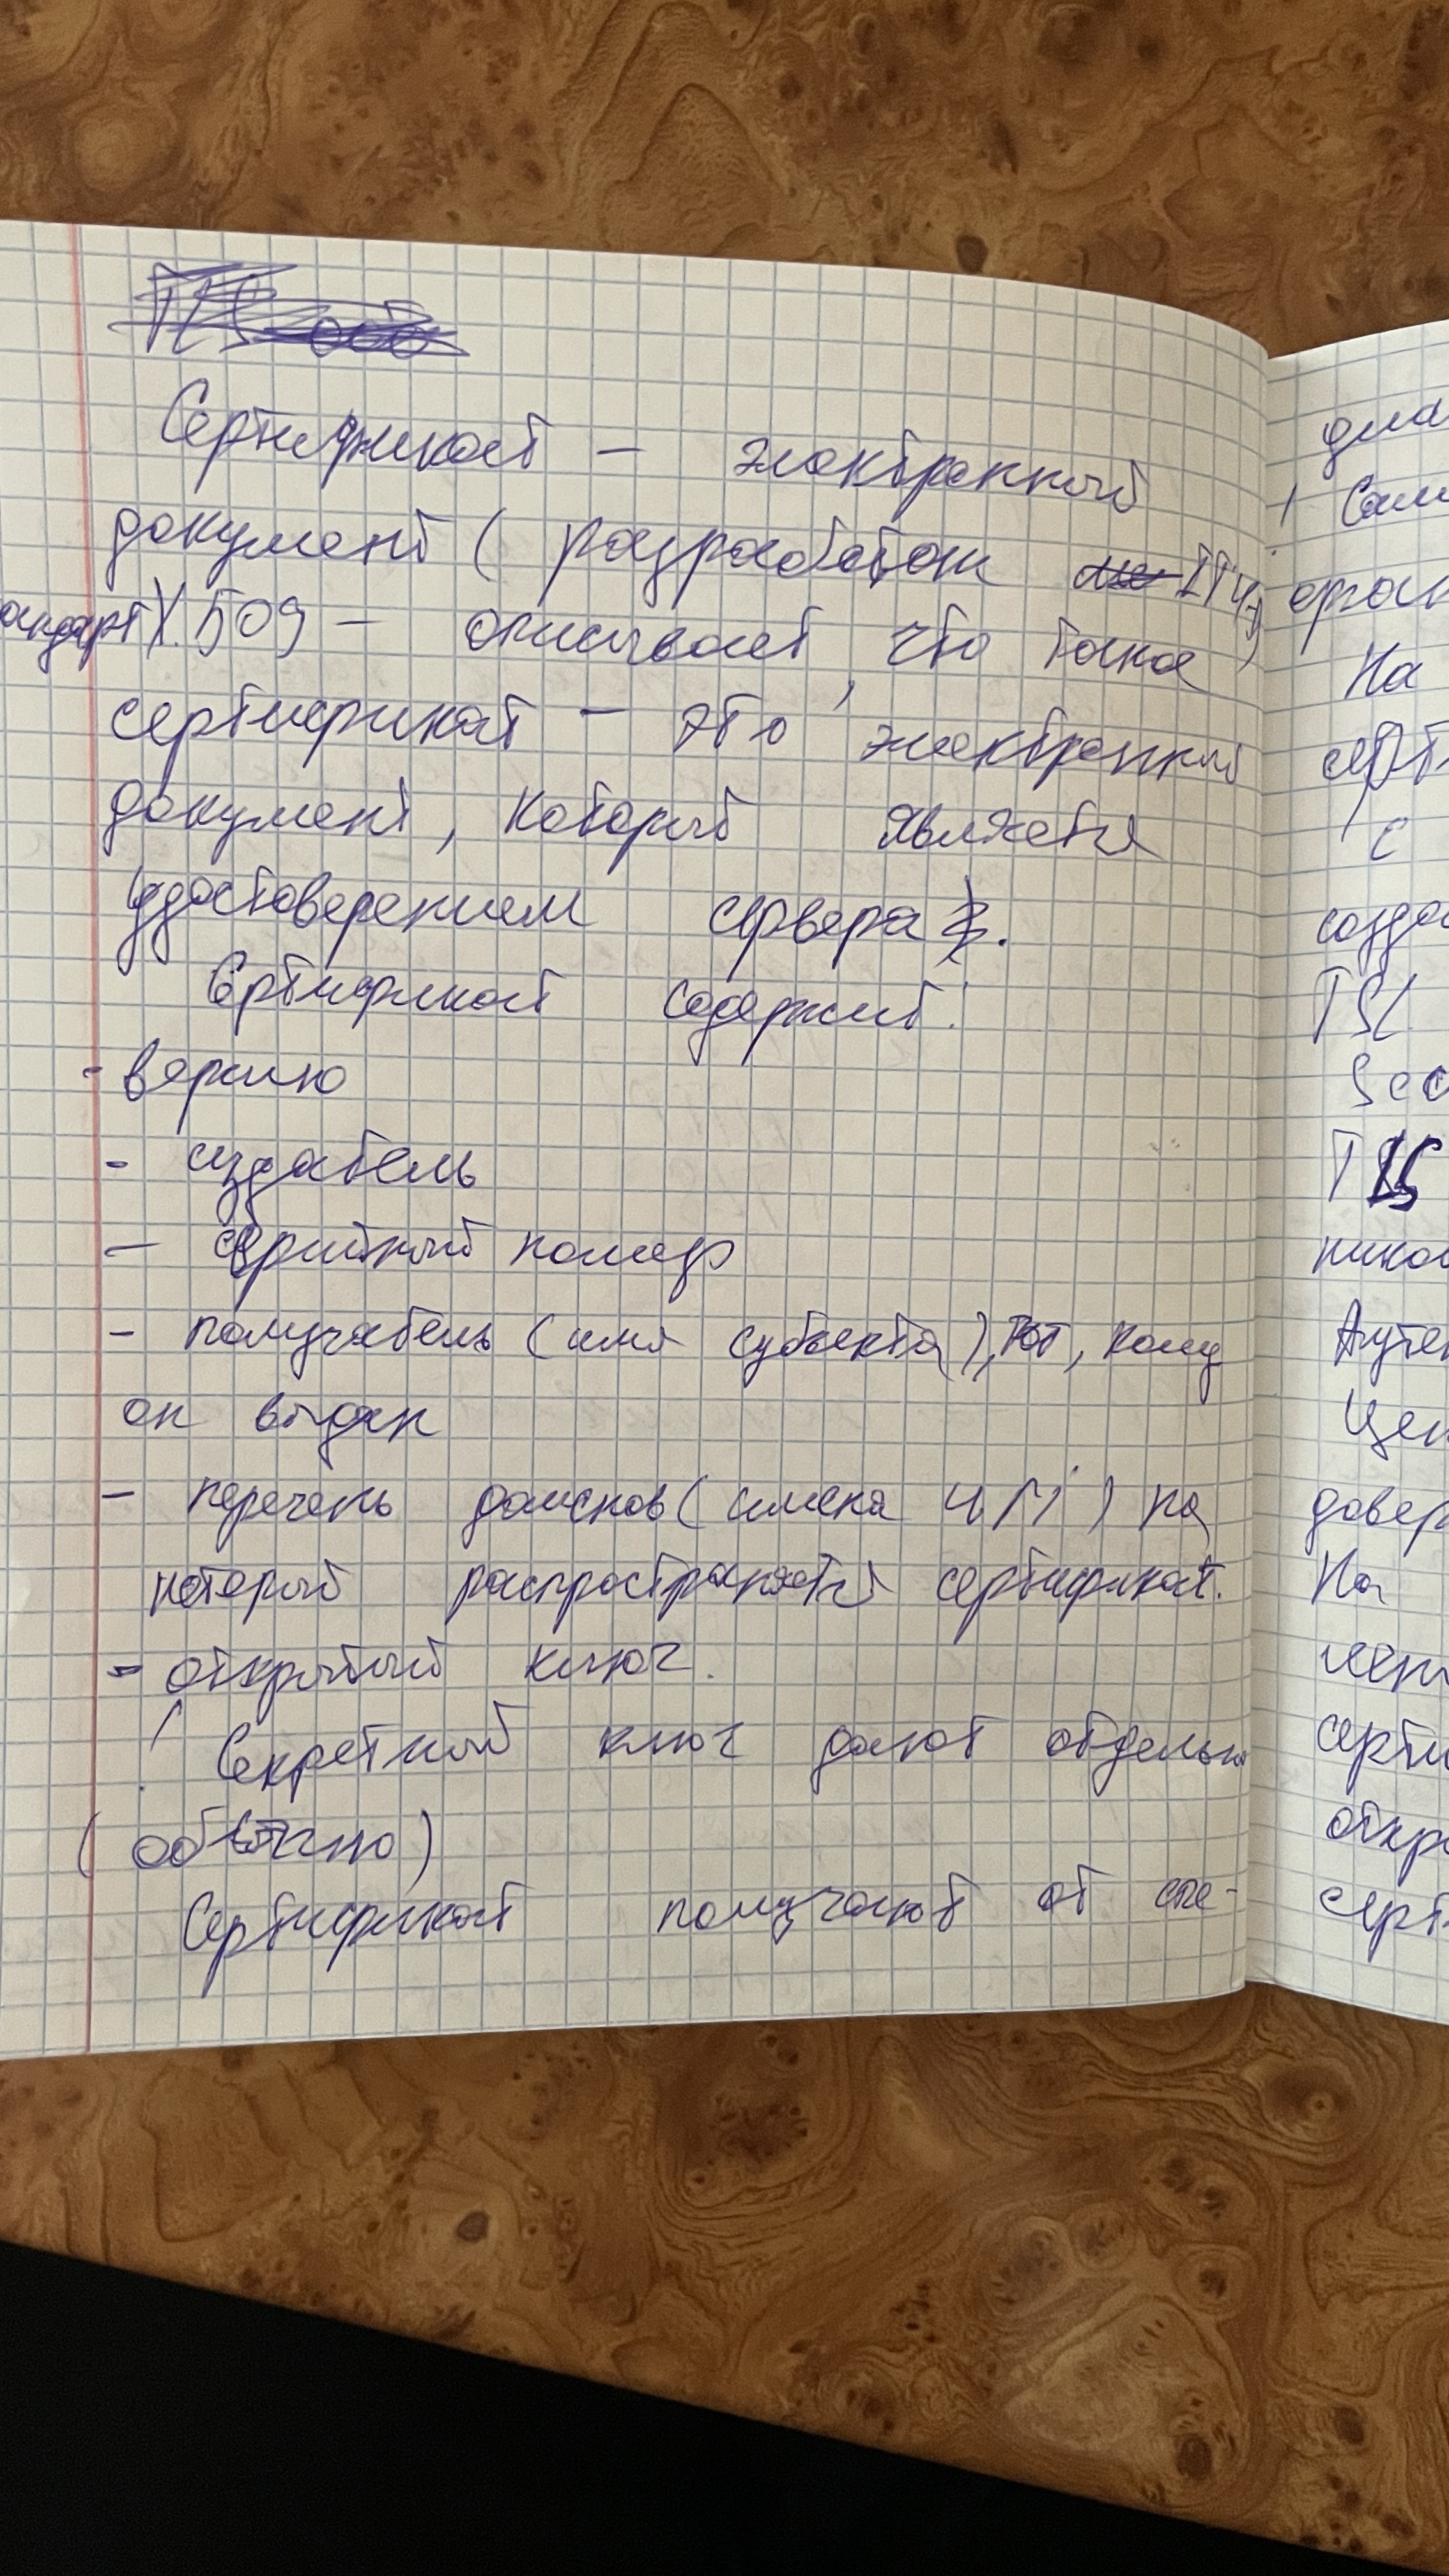 Сертификат – электронный
документ (разработан ITU-T,
стандарт X.509 – описывает, что такое
сертификат – это электронный
документ, который является
удостоверением сервера.
Сертификат содержит:
- версию
- издатель
- серийный номер
- получатель (имя субъекта), тот, кому
он выдан
- перечень доменов (имена и М) на
который распространяется сертификат.
- открытый ключ.
! Секретный ключ дают отдельно
(обычно)
Сертификат получают от спе-
На
с
TSL
TLS
На